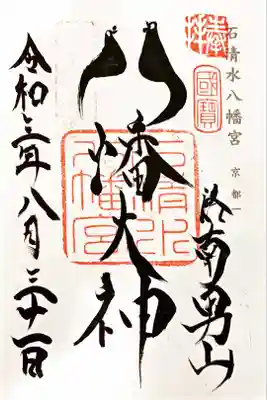 石清水八幡宮 京都一
奉拝
國寶
洛南男山
八幡大神
石清水八幡宮
令和三年八月三十一日